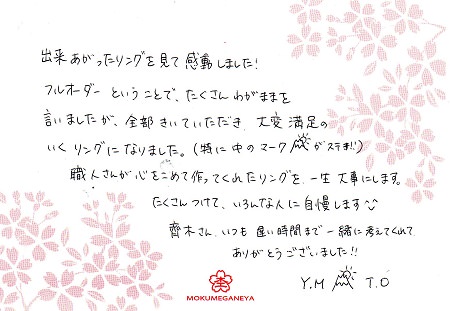 出来あがったリングを見て感動しました!
フルオーダーということで、たくさんわがままを
言いましたが、全部きいていただき、大変満足の
いくリングになりました。(特に中のマークがステキ!!)
職人さんが心をこめて作ってくれたリングを、一生大事にします。
たくさんつけて、いろんな人に自慢します
齊木さん、いつも遅い時間まで一緒に考えてくれて
ありがとうございました!!
Y.M T.O
MOKUMEGANEYA